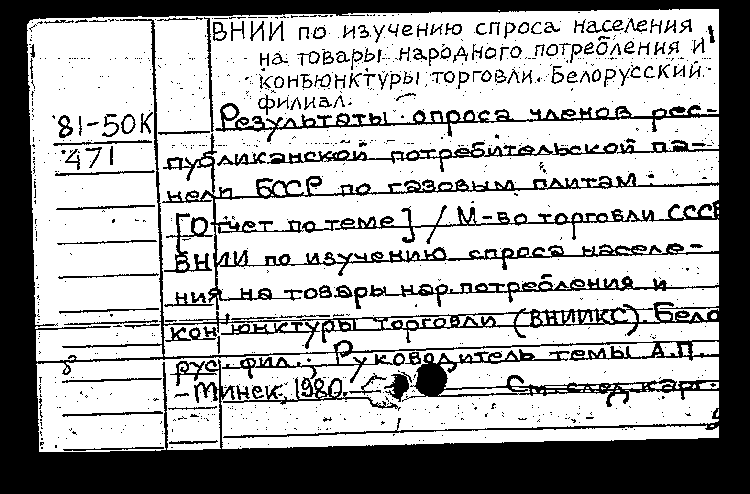 ВНИИ по изучению спроса населения
на товары народного потребления и
конъюнктуры торговли. Белорусский
филиал.
81-50К
471
Результаты опроса членов рес-
публиканской потребительской па-
нели БССР по газовым плитам:
[Отчет по теме] / М-во торговли СССР
ВНИИ по изучению спроса населе-
ния на товары нар. потребления и
конъюнктуры торговли (ВНИИКС) Бело
рус. фил.; Руководитель темы А.П.
- Минск, 1980.
См. след. карт.